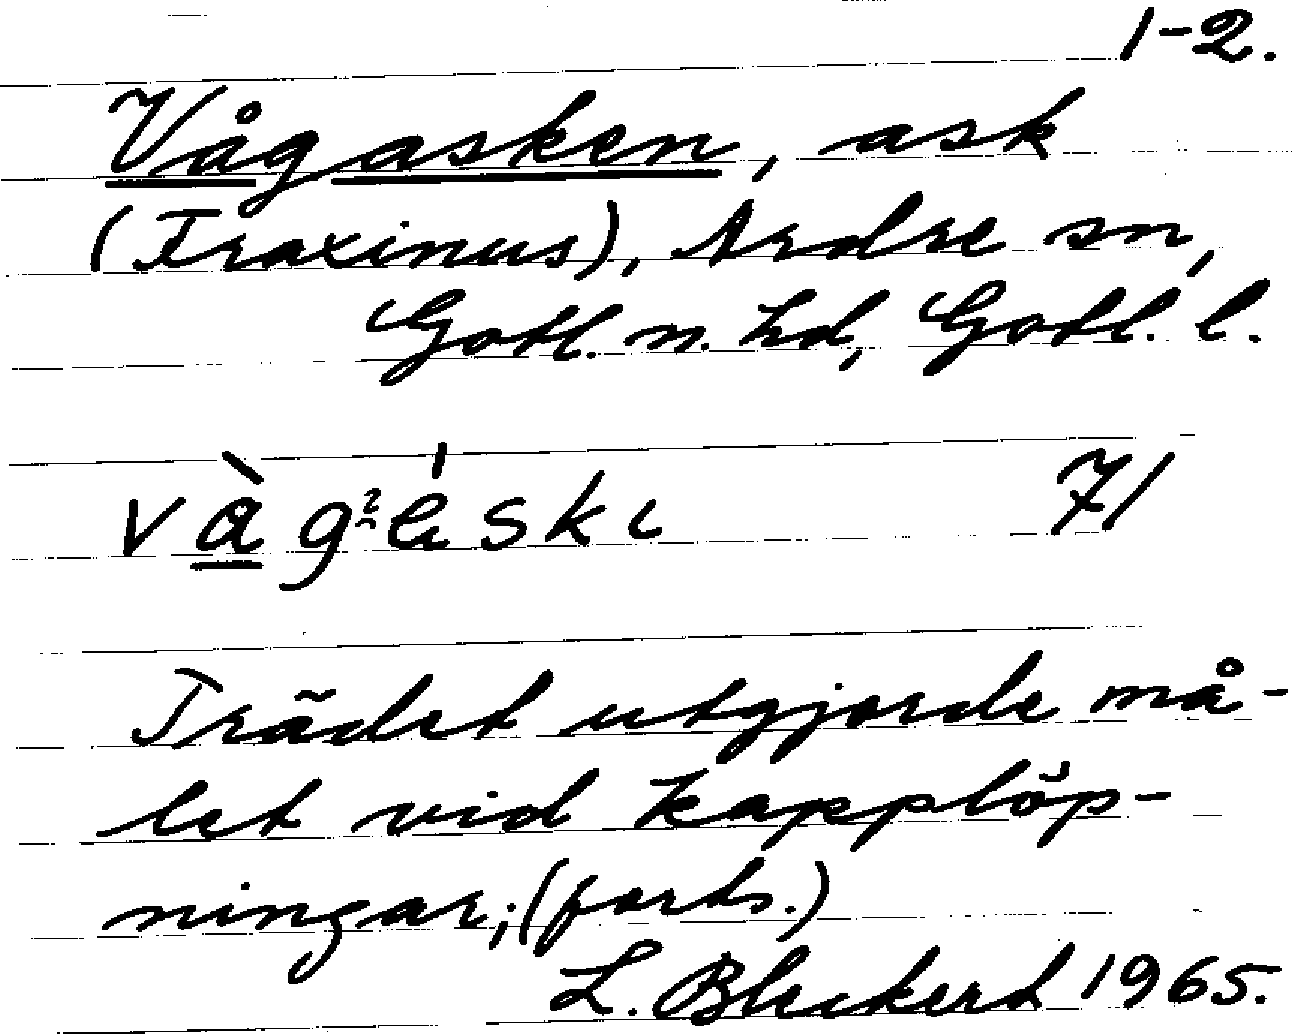 1-2.
Vågasken, ask
(Fraxinus), Ardre sn,
Gotl. n. hd, Gotl. l.
71
Trädet utgjorde må-
let vid kapplöp-
ningar; (forts.)
L. Bleckert 1965.